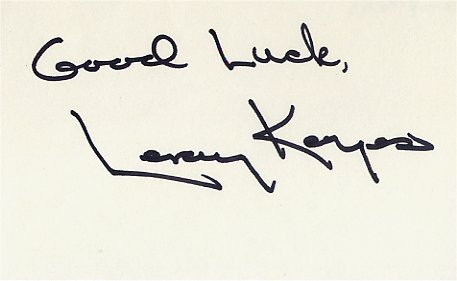 Good Luck,
Leroy Keyes